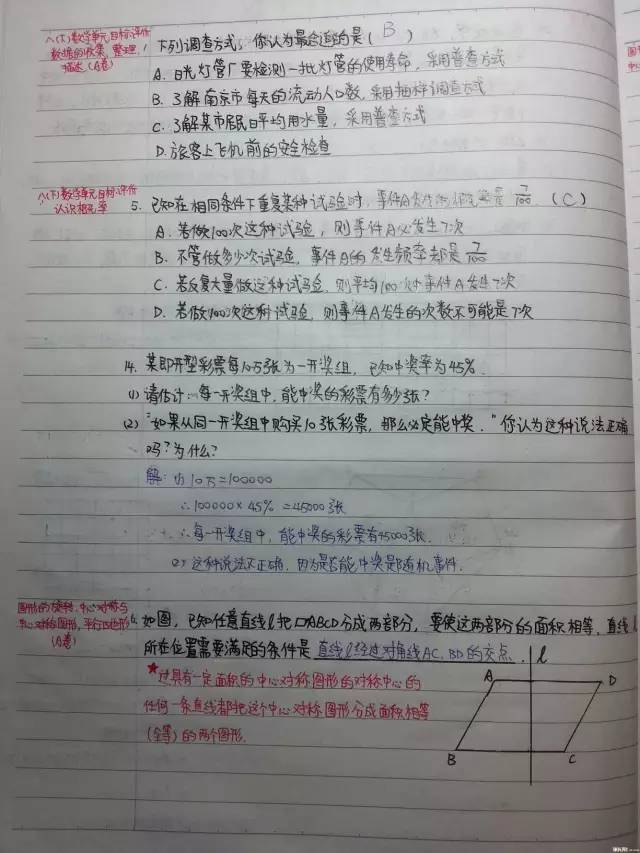 八(下)数学单元目标评价
数据的收集、整理、
描述(A卷)
下列调查方式,你认为最合适的是( B )
A. 日光灯管厂要检测一批灯管的使用寿命,采用普查方式
B. 了解南京市每天的流动人口数,采用抽样调查方式
C. 了解某市居民日平均用水量,采用普查方式
D. 旅客上飞机前的安全检查
八(下)数学单元目标评价
认识概率
5. 已知在相同条件下重复某种试验时,事件A发生的概率是 7/100 (C)
A. 若做100次这种试验,则事件A必发生7次
B. 不管做多少次试验,事件A的发生频率都是 7/100
C. 若反复大量做这种试验,则平均100次中事件A发生7次
D. 若做100次这种试验,则事件A发生的次数不可能是7次
14. 某即开型彩票每10万张为一开奖组,已知中奖率为45%.
(1) 请估计:每一开奖组中,能中奖的彩票有多少张?
(2) "如果从同一开奖组中购买10张彩票,那么必定能中奖."你认为这种说法正确
吗?为什么?
解: (1) 10万=100000
∴100000×45% =45000张
∴每一开奖组中,能中奖的彩票有45000张.
(2) 这种说法不正确.因为是否能中奖是随机事件.
图形的旋转、中心对称与
中心对称图形,平行四边形
(A卷)
6. 如图,已知任意直线l把▱ABCD分成两部分,要使这两部分的面积相等,直线l
所在位置需要满足的条件是 直线l经过对角线AC、BD的交点.
★过具有一定面积的中心对称图形的对称中心的
任何一条直线都把这个中心对称图形分成面积相等
(全等)的两个图形.
l
A D
B C